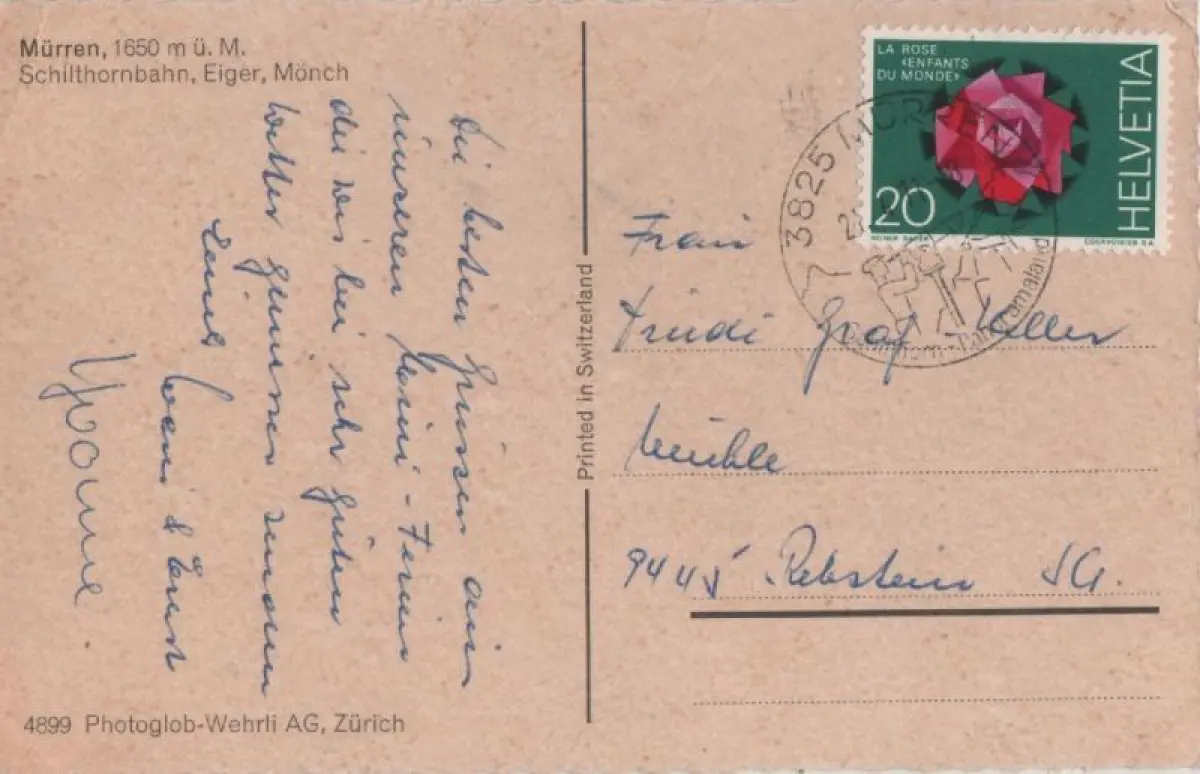 Mürren, 1650 m ü. M.
Schilthornbahn, Eiger, Mönch
Die besten Grüssen aus
unseren Mini-Ferien
die wir bei sehr gutem
Wetter geniessen senden
& Ernst
Yvonne.
4899 Photoglob-Wehrli AG, Zürich
Printed in Switzerland
LA ROSE
«ENFANTS
DU MONDE»
HELVETIA
20
COURVOISIER S.A.
3825 MÜRREN
Frau
Trudi Graf-Keller
Mühle
9445 Rebstein SG.